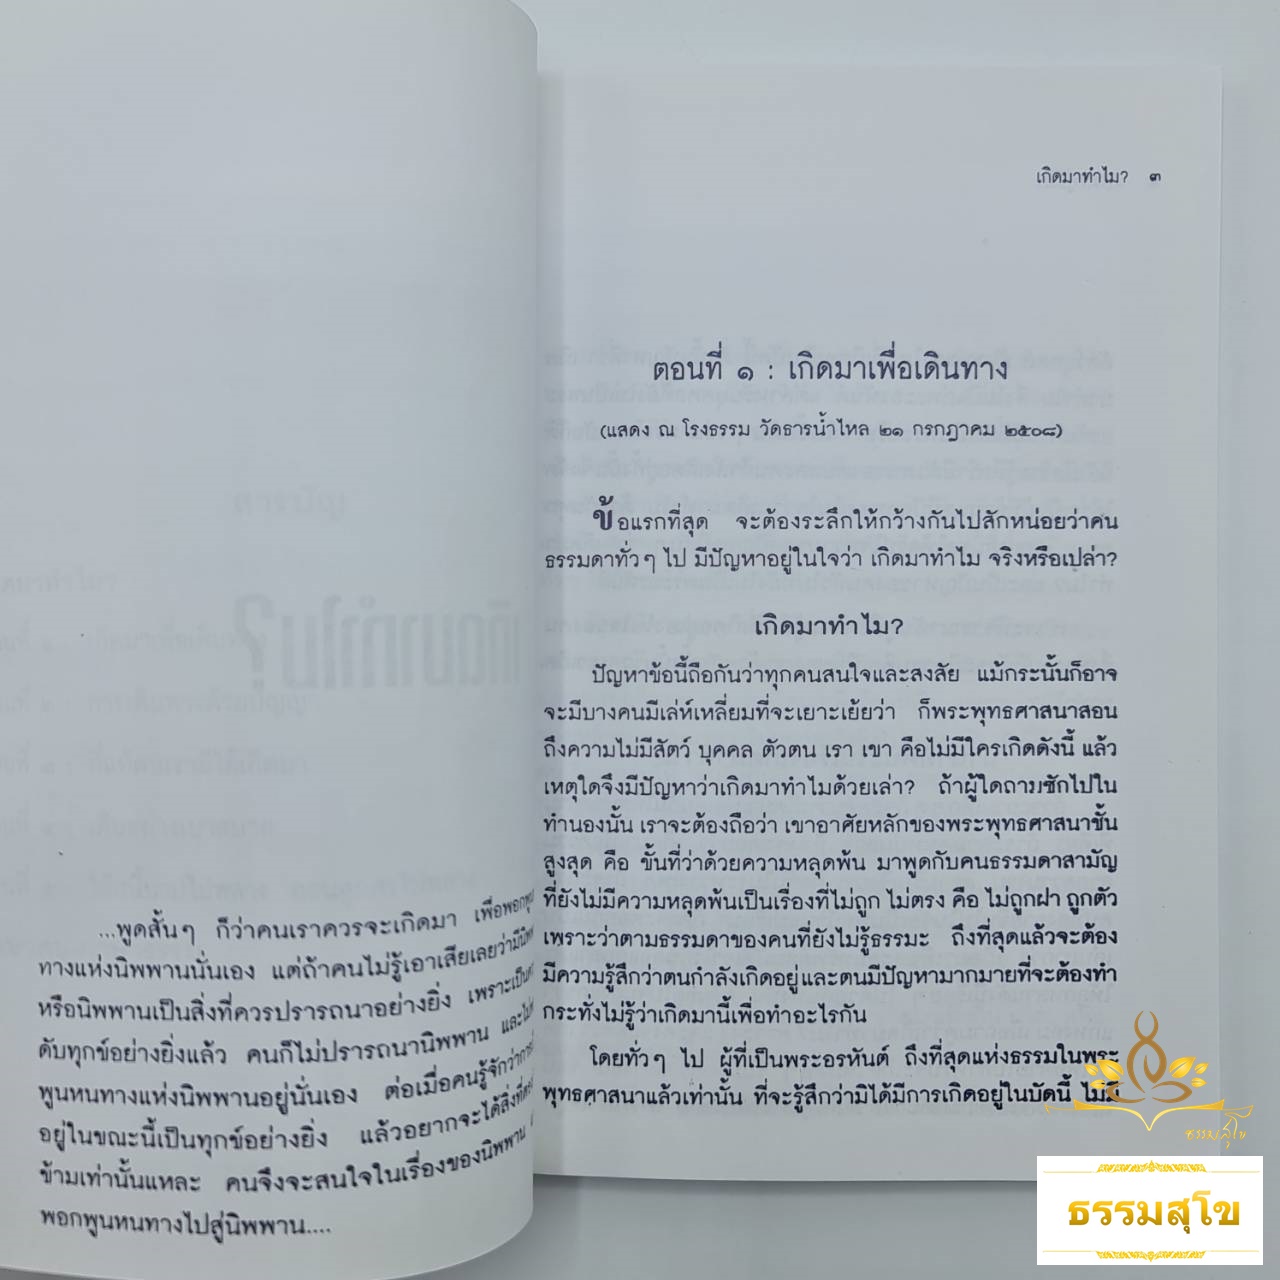 ...พูดสั้นๆ ก็ว่าคนเราควรจะเกิดมา เพื่อพอกพูน
ทางแห่งนิพพานนั่นเอง แต่ถ้าคนไม่รู้เอาเสียเลยว่ามีนิพ
หรือนิพพานเป็นสิ่งที่ควรปรารถนาอย่างยิ่ง เพราะเป็น
ดับทุกข์อย่างยิ่งแล้ว คนก็ไม่ปรารถนานิพพาน และไม่
พูนหนทางแห่งนิพพานอยู่นั่นเอง ต่อเมื่อคนรู้จักว่าการ
อยู่ในขณะนี้เป็นทุกข์อย่างยิ่ง แล้วอยากจะได้สิ่งที่ตรง
ข้ามเท่านั้นแหละ คนจึงจะสนใจในเรื่องของนิพพาน
พอกพูนหนทางไปสู่นิพพาน....
เกิดมาทำไม? ๓
ตอนที่ ๑ : เกิดมาเพื่อเดินทาง
(แสดง ณ โรงธรรม วัดธารน้ำไหล ๒๑ กรกฎาคม ๒๕๐๘)
ข้อแรกที่สุด จะต้องระลึกให้กว้างกันไปสักหน่อยว่าคน
ธรรมดาทั่วๆ ไป มีปัญหาอยู่ในใจว่า เกิดมาทำไม จริงหรือเปล่า?
เกิดมาทำไม?
ปัญหาข้อนี้ถือกันว่าทุกคนสนใจและสงสัย แม้กระนั้นก็อาจ
จะมีบางคนมีเล่ห์เหลี่ยมที่จะเยาะเย้ยว่า ก็พระพุทธศาสนาสอน
ถึงความไม่มีสัตว์ บุคคล ตัวตน เรา เขา คือไม่มีใครเกิดดังนี้ แล้ว
เหตุใดจึงมีปัญหาว่าเกิดมาทำไมด้วยเล่า? ถ้าผู้ใดถามซักไปใน
ทำนองนั้น เราจะต้องถือว่า เขาอาศัยหลักของพระพุทธศาสนาชั้น
สูงสุด คือ ขั้นที่ว่าด้วยความหลุดพ้น มาพูดกับคนธรรมดาสามัญ
ที่ยังไม่มีความหลุดพ้นเป็นเรื่องที่ไม่ถูก ไม่ตรง คือ ไม่ถูกฝา ถูกตัว
เพราะว่าตามธรรมดาของคนที่ยังไม่รู้ธรรมะ ถึงที่สุดแล้วจะต้อง
มีความรู้สึกว่าตนกำลังเกิดอยู่และตนมีปัญหามากมายที่จะต้องทำ
กระทั่งไม่รู้ว่าเกิดมานี้เพื่อทำอะไรกัน
โดยทั่วๆ ไป ผู้ที่เป็นพระอรหันต์ ถึงที่สุดแห่งธรรมในพระ
พุทธศาสนาแล้วเท่านั้น ที่จะรู้สึกว่ามิได้มีการเกิดอยู่ในบัดนี้ ไม่มี
ธรรมสุโข
ธรรมสุโข